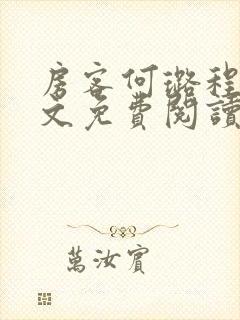 房客何璐程
文免費閱讀
萬汝賓